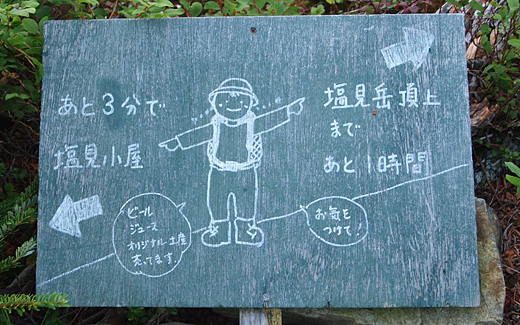 あと3分で
塩見小屋
塩見岳頂上
まで
あと1時間
ビール
ジュース
オリジナル土産
売ってます!
お気を
つけて!